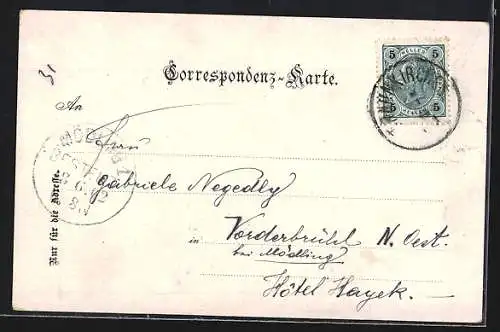 31
5 HELLER 5
Correspondenz-Karte.
An
Frau
Gabriele Negedly
in Vorderbrühl N. Oest.
bei Mödling
Hôtel Hayek.
Nur für die Adresse.
MÖDLING